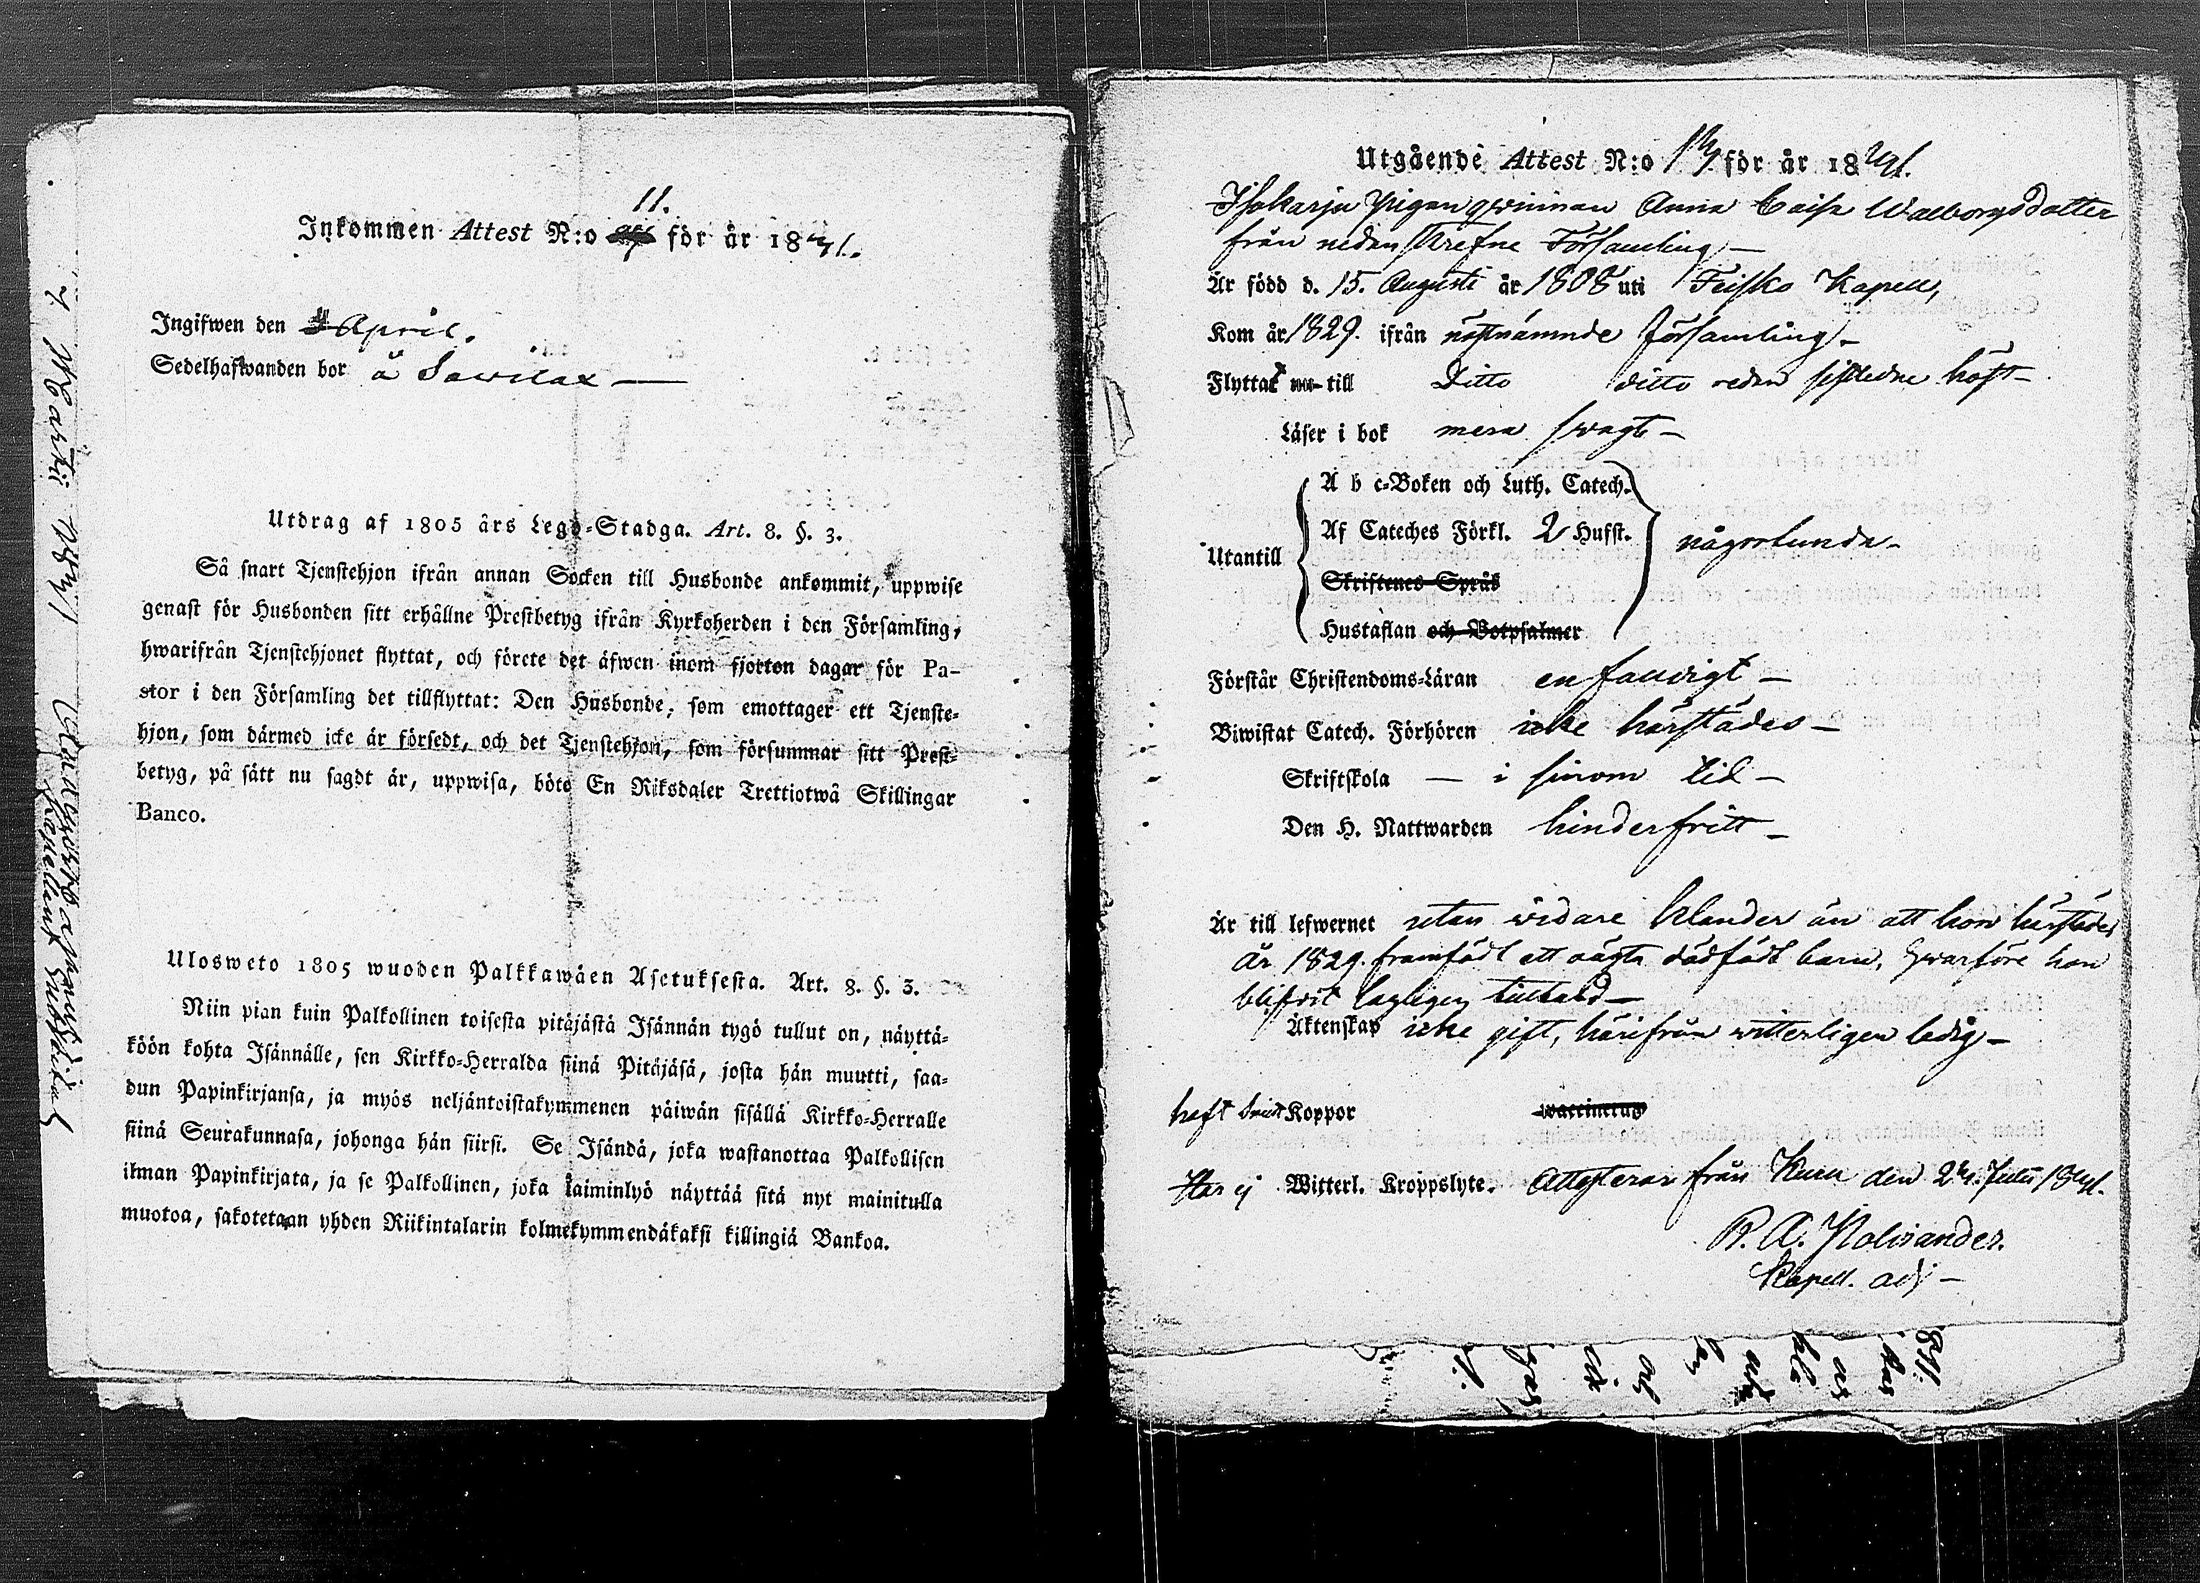 11.
Inkommen Attest N:o för år 1841.
Ingifwen den 4 April.
Sedelhafwanden bor å Sawilax —
Utdrag af 1805 års Lego-Stadga. Art. 8. §. 3.
Så snart Tjenstehjon ifrån annan Socken till Husbonde ankommit, uppwise
genast för Husbonden sitt erhållne Prestbetyg ifrån Kyrkoherden i den Församling,
hwarifrån Tjenstehjonet flyttat, och förete det äfwen inom fjorton dagar för Pa-
stor i den Församling det tillflyttat: Den Husbonde, som emottager ett Tjenste-
hjon, som därmed icke är försedt, och det Tjenstehjon, som försummar sitt Prest-
betyg, på sätt nu sagdt är, uppwisa, böte En Riksdaler Trettiotwå Skillingar
Banco.
Ulosweto 1805 wuoden Palkkawäen Asetuksesta. Art. 8. §. 3.
Niin pian kuin Palkollinen toisesta pitäjästä Isännän tygö tullut on, näyttä-
köön kohta Isännälle, sen Kirkko-Herralda siinä Pitäjäsä, josta hän muutti, saa-
dun Papinkirjansa, ja myös neljäntoistakymmenen päiwän sisällä Kirkko-Herralle
siinä Seurakunnasa, johonga hän siirsi. Se Isändä, joka wastanottaa Palkollisen
ilman Papinkirjata, ja se Palkollinen, joka laiminlyö näyttää sitä nyt mainitulla
muotoa, sakotetaan yhden Riikintalarin kolmekymmendäkaksi killingiä Bankoa.
Utgående Attest N:o för år 1841.
Pigan qwinnan Anna Caisa Walborgsdotter
från nedanskrefne Församling —
Är född d. 15. Augusti år 1808 uti Teisko Kapell,
Kom år 1829. ifrån nästnämnde Församling —
Flyttat nu till Ditto ditto redan sistledne höst —
Läser i bok mera swagt —
Utantill
A b c-Boken och Luth. Catech.
Af Cateches Förkl. 2 Hufst.
Skriftenes Språk
Hustaflan och Botpsalmer
någorlunda —
Förstår Christendoms-Läran enfaldigt —
Biwistat Catech. Förhören icke härstädes —
Skriftskola — i sinom tid —
Den H. Nattwarden hinderfritt —
Är till lefwernet utan widare klander än att hon härstädes
år 1829. framfödt ett oägta dödfödt barn, hwarföre hon
blifwit lagligen tilltald —
Äktenskap icke gift, härifrån witterligen ledig —
haft Koppor vaccinerad
Har ej Witterl. Kroppslyte. Attesterar från Kuru den 24. Julii 1841.
Kapell. adj —